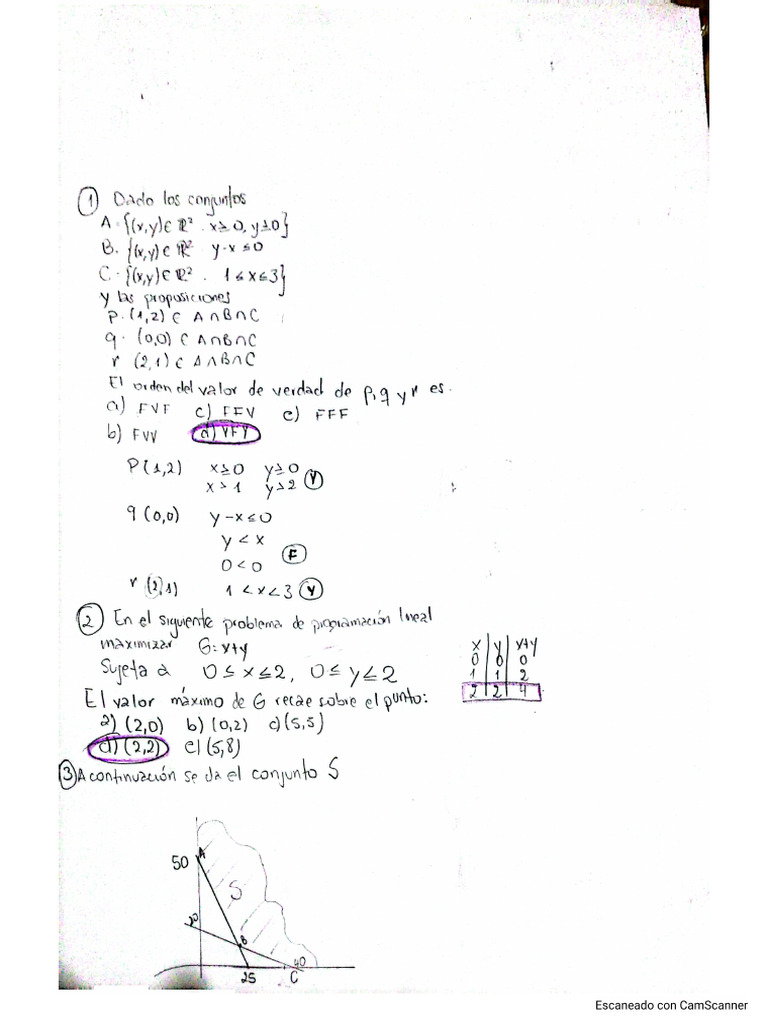 ① Dado los conjuntos
A = {(x,y) ∈ ℝ² . x ≥ 0, y ≥ 0}
B. {(x,y) ∈ ℝ² y-x ≤ 0
C = {(x,y) ∈ ℝ² . 1 ≤ x ≤ 3}
y las proposiciones
p. (1,2) ∈ A∩B∩C
q. (0,0) ∈ A∩B∩C
r (2,1) ∈ A∩B∩C
El orden del valor de verdad de p,q y r es.
a) FVF c) FFV e) FFF
b) FVV d) VFV
P(1,2) x≥0 y≥0
x>1 y>2 Ⓥ
q (0,0) y-x≤0
y < x
0 < 0 Ⓕ
r (2,1) 1 < x < 3 Ⓥ
② En el siguiente problema de programación lineal
maximizar G: x+y
Sujeta a 0 ≤ x ≤ 2, 0 ≤ y ≤ 2
x y x+y
0 0 0
1 1 2
2 2 4
El valor máximo de G recae sobre el punto:
a) (2,0) b) (0,2) c) (5,5)
d) (2,2) e) (5,8)
③ A continuación se da el conjunto S
50 A
S
20
B
40
25 C
Escaneado con CamScanner